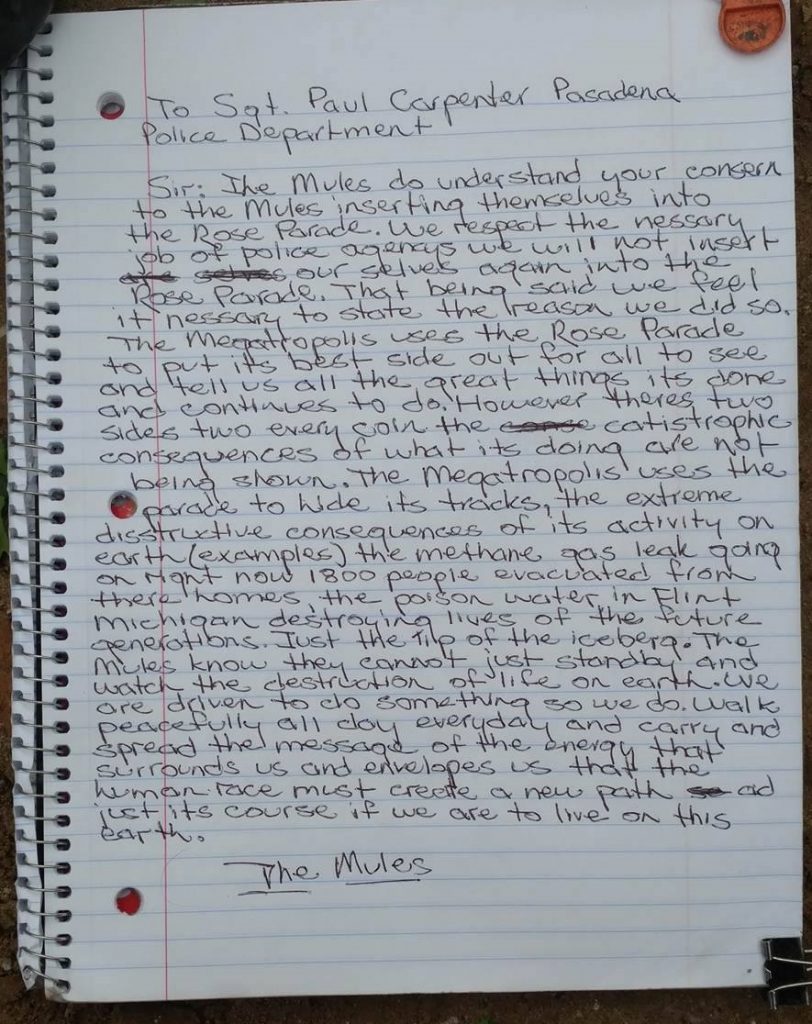 To Sgt. Paul Carpenter Pasadena
Police Department
Sir: The Mules do understand your consern
to the Mules inserting themselves into
the Rose Parade. We respect the nessary
job of police agencys we will not insert
our selves again into the
Rose Parade. That being said we feel
it nessary to state the reason we did so.
The Megatropolis uses the Rose Parade
to put its best side out for all to see
and tell us all the great things its done
and continues to do. However theres two
sides two every coin the catistrophic
consequences of what its doing are not
being shown. The Megatropolis uses the
parade to hide its tracks, the extreme
disstructive consequences of its activity on
earth (examples) the methane gas leak going
on right now 1800 people evacuated from
there homes, the poison water in Flint
Michigan destroying lives of the future
generations. Just the tip of the iceberg. The
Mules know they cannot just standby and
watch the destruction of life on earth. We
are driven to do something so we do. Walk
peacefully all day everyday and carry and
spread the message of the energy that
surrounds us and envelopes us that the
human race must create a new path ad
just its course if we are to live on this
earth.
The Mules